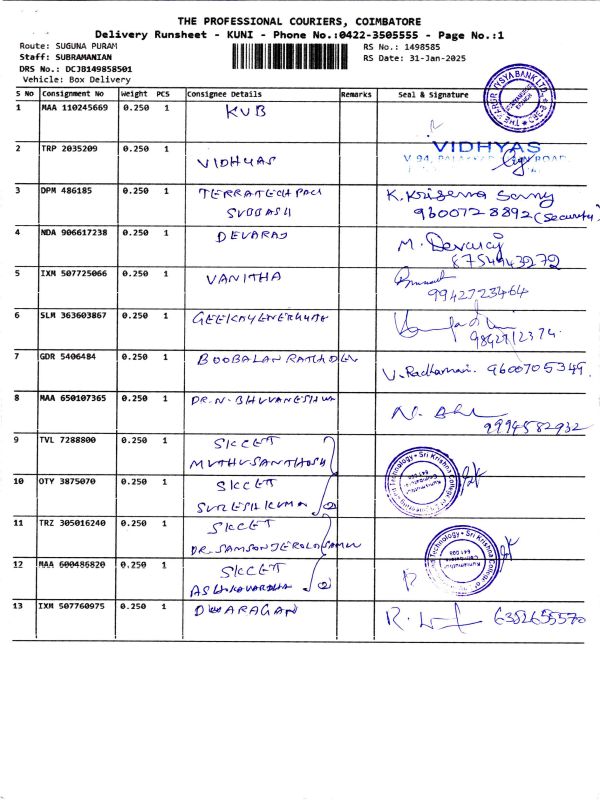 THE PROFESSIONAL COURIERS, COIMBATORE
Delivery Runsheet - KUNI - Phone No.:0422-3505555 - Page No.:1
Route: SUGUNA PURAM
RS No.: 1498585
Staff: SUBRAMANIAN
RS Date: 31-Jan-2025
DRS No.: DCJB149858501
Vehicle: Box Delivery
S No Consignment No Weight PCS Consignee Details Remarks Seal & Signature
1 MAA 110245669 0.250 1 KVB
2 TRP 2035209 0.250 1 VIDHYAS VIDHYAS
V 94, ROAD,
3 DPM 486185 0.250 1 TERRATECH PACK K. Krishna Samy
SUBBASH 9600728892 (Security)
4 NDA 906617238 0.250 1 DEVARAJ M. Devaraj
8754943272
5 IXM 507725066 0.250 1 VANITHA
9942723464
6 SLM 363603867 0.250 1
7 GDR 5406484 0.250 1 BOOBALAN V. Radhamani. 9600705349.
8 MAA 650107365 0.250 1 DR. N. BHUVANESHWA
9994582932
9 TVL 7288800 0.250 1 SKCET
MUTHUSANTHOSH
10 OTY 3875070 0.250 1 SKCET
SURESH KUMAR
11 TRZ 305016240 0.250 1 SKCET
DR. SAMSON JEROLD SAMU
12 MAA 600486820 0.250 1 SKCET
13 IXM 507760975 0.250 1 DWARAGAN 6352655570